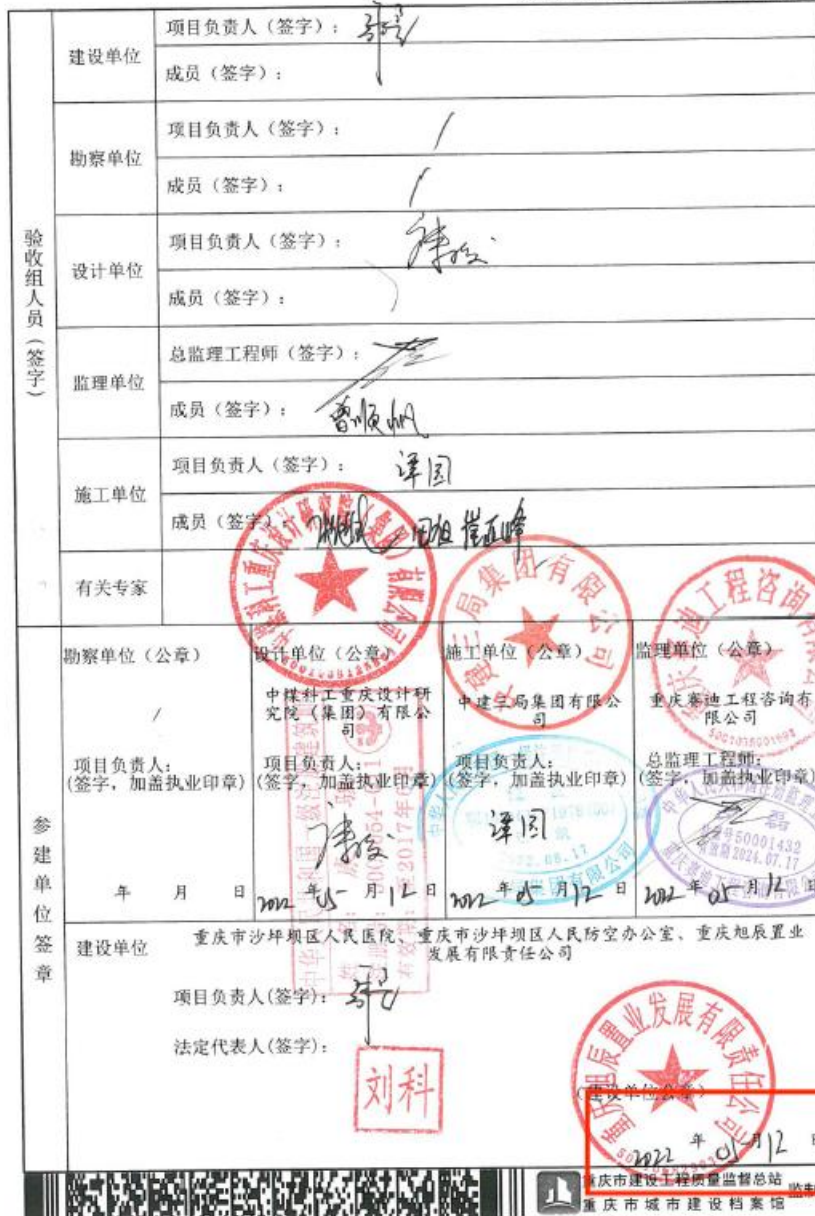 验收组人员（签字）
建设单位
项目负责人（签字）：
成员（签字）：
勘察单位
项目负责人（签字）： /
成员（签字）： /
设计单位
项目负责人（签字）：
成员（签字）：
监理单位
总监理工程师（签字）：
成员（签字）： 曾顺帆
施工单位
项目负责人（签字）： 译园
成员（签字）： 崔亚峰
有关专家
中煤科工重庆设计研究院（集团）有限公司
中建三局集团有限公司
参建单位签章
勘察单位（公章）
/
项目负责人：
(签字，加盖执业印章)
年 月 日
设计单位（公章）
中煤科工重庆设计研
究院（集团）有限公
司
项目负责人：
(签字，加盖执业印章)
2022 年 05 月 12 日
施工单位（公章）
中建三局集团有限公
司
项目负责人：
(签字，加盖执业印章)
译园
2022 年 05 月 12 日
监理单位（公章）
重庆赛迪工程咨询有
限公司
总监理工程师：
(签字，加盖执业印章)
50001432
2024.07.17
2022 年 05 月 12 日
建设单位
重庆市沙坪坝区人民医院、重庆市沙坪坝区人民防空办公室、重庆旭辰置业
发展有限责任公司
项目负责人(签字)：
法定代表人(签字)：
刘科
重庆旭辰置业发展有限责任公司
（建设单位公章）
2022 年 05 月 12 日
重庆市建设工程质量监督总站
重庆市城市建设档案馆
监制